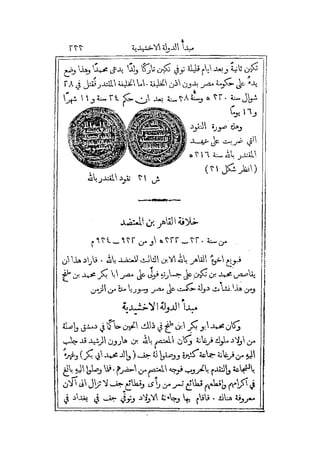 مبدأ الدولة الاخشيدية ٢٣٣
تكين ثانية وبعد ايام قليلة توفي تكين تاركًا ولدًا يدعى محمدًا وهذا وضع
يده على حكومة مصر بدون اذن الخليفة. اما الخليفة المقتدر فقتل في ٢٨
شوال سنة ٣٢٠ ه وسنهُ ٣٨ سنة بعد ان حكم ٢٤ سنة و١١ شهرًا
و١٦ يومًا
وهذه صورة النقود
التي ضربت على عهد
المقتدر بالله سنة ٣١٦ ه
(انظر شكل ٣١)
ش ٣١ نقود المقتدر بالله
خلافة القاهر بن المعتضد
من سنة ٣٢٠ — ٣٢٢ ه او من ٩٣٢ — ٩٣٤ م
فبويع اخوهُ القاهر بالله الابن الثالث للمعتضد بالله. فاراد هذا ان
يقاصص محمد بن تكين على جسارته فولى على مصر ابا بكر محمد بن طغج
ومن هذا نشأت دولة حكمت على مصر وسوريا مدة من الزمن
مبدأ الدولة الاخشيدية
وكان محمد ابو بكر ابن طغج في ذلك الحين حاكمًا في دمشق واصله
من اولاد ملوك فرغانة وكان المعتصم بالله بن هارون الرشيد قد جلب
اليهِ من فرغانة جماعة كثيرة ووصفوا له جف (والد محمد ابي بكر) وغيرهُ
بالشجاعة والتقدم بالحروب فوجه المعتصم من احضرهم. فلما وصلوا اليهِ بالغ
في اكرامهم واقطعهم قطائع بسر من رأى وقطائع جف لا تزال الى الآن
معروفة هناك. فاقام بها وجاءتهُ الاولاد وتوفي جف في بغداد في